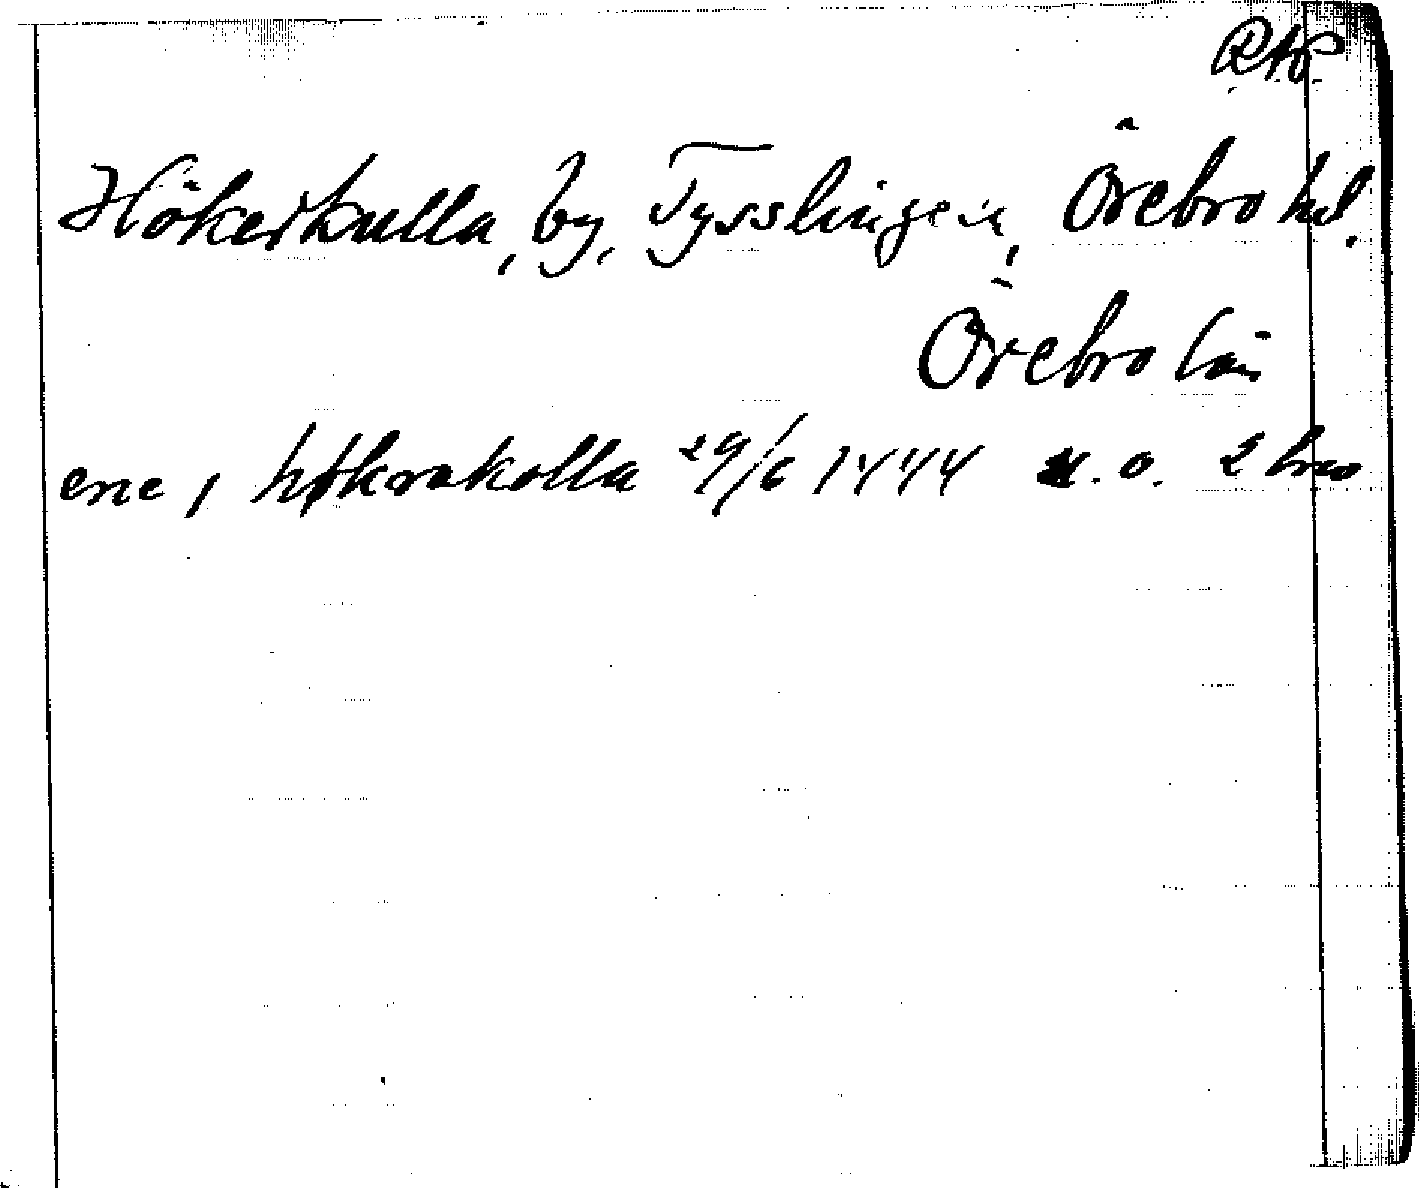 RAP.
Hökerkulla, by, Tysslingen, Örebro hd.
Örebro län
ene, høkrakolla 29/6 1444 u.o. 2 brev